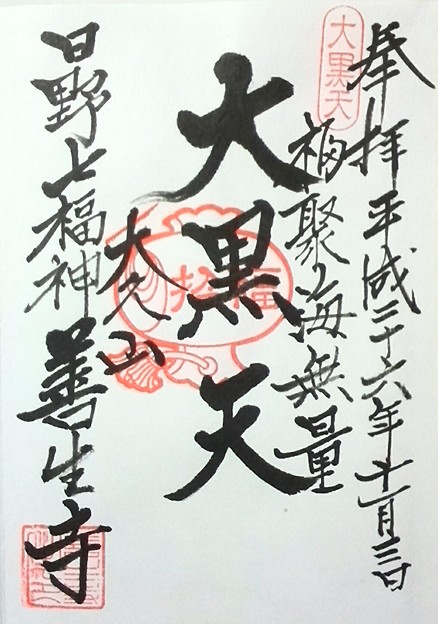 奉拝 平成二十六年十一月三日
大黒天
福聚海無量
大黒天
招福
大久山
日野七福神 善生寺